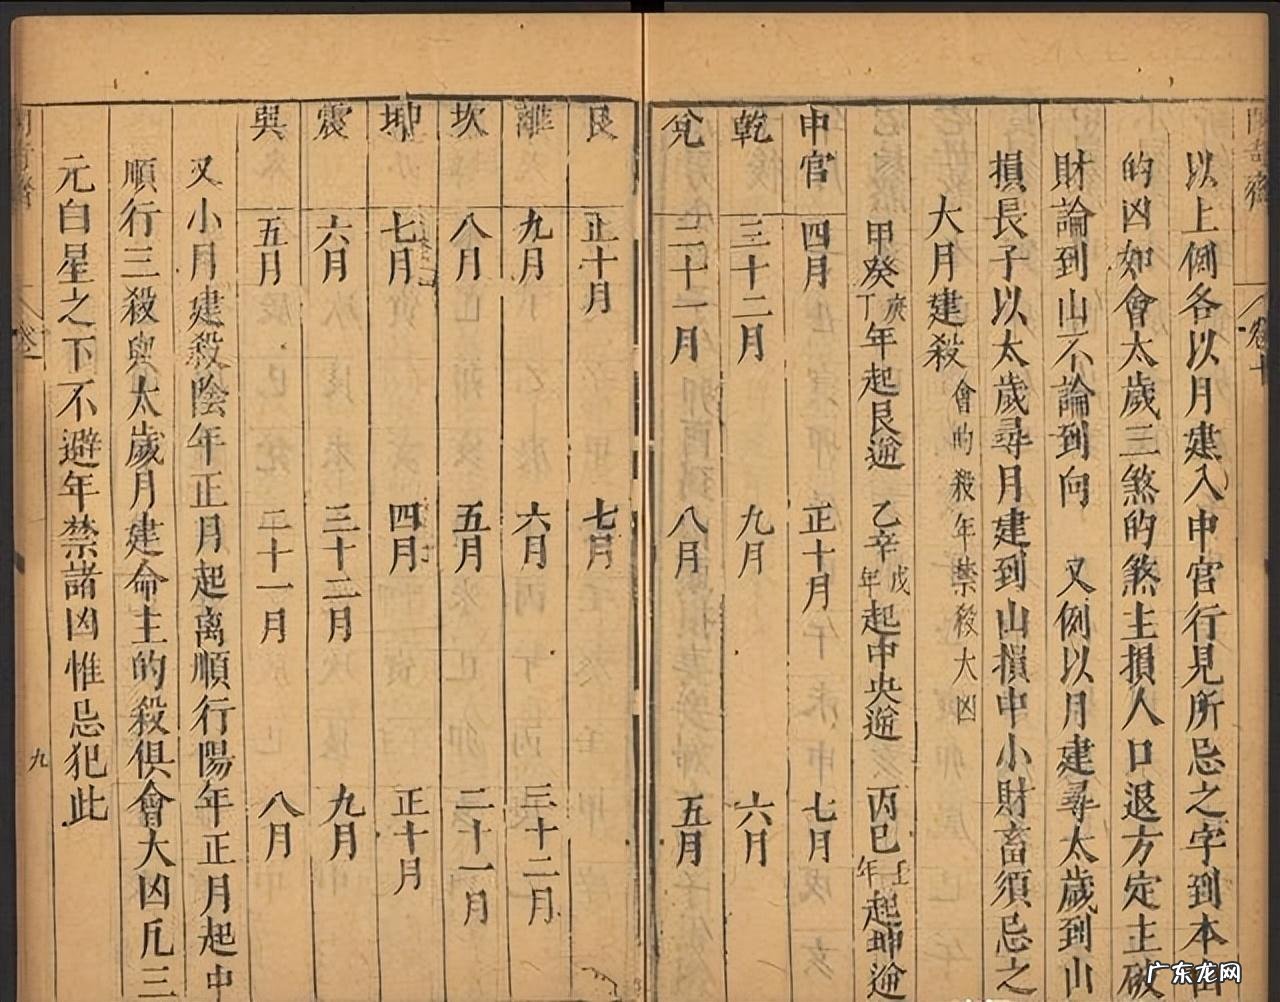 以上例各以月建入中宫行見所忌之字到本山
的凶如會太歲三煞的煞主損人口退方定主破
財論到山不論到向 又例以月建尋太歲到山
損長子以太歲尋月建到山損中小財畜須忌之
大月建殺 會的殺年禁殺大凶
甲癸庚丁年起艮逆 乙辛戊年起中央逆 丙巳壬年起坤逆
中宫 四月 正十月 七月
乾 三十二月 九月 六月
兌 二十一月 八月 五月
艮 正十月 七月
離 九月 六月 三十二月
坎 八月 五月 二十一月
坤 七月 四月 正十月
震 六月 三十二月 九月
巽 五月 二十一月 八月
又小月建殺陰年正月起离順行陽年正月起中
順行三殺與太歲月建命主的殺俱會大凶凡三
元白星之下不避年禁諸凶惟忌犯此
九
广东龙网